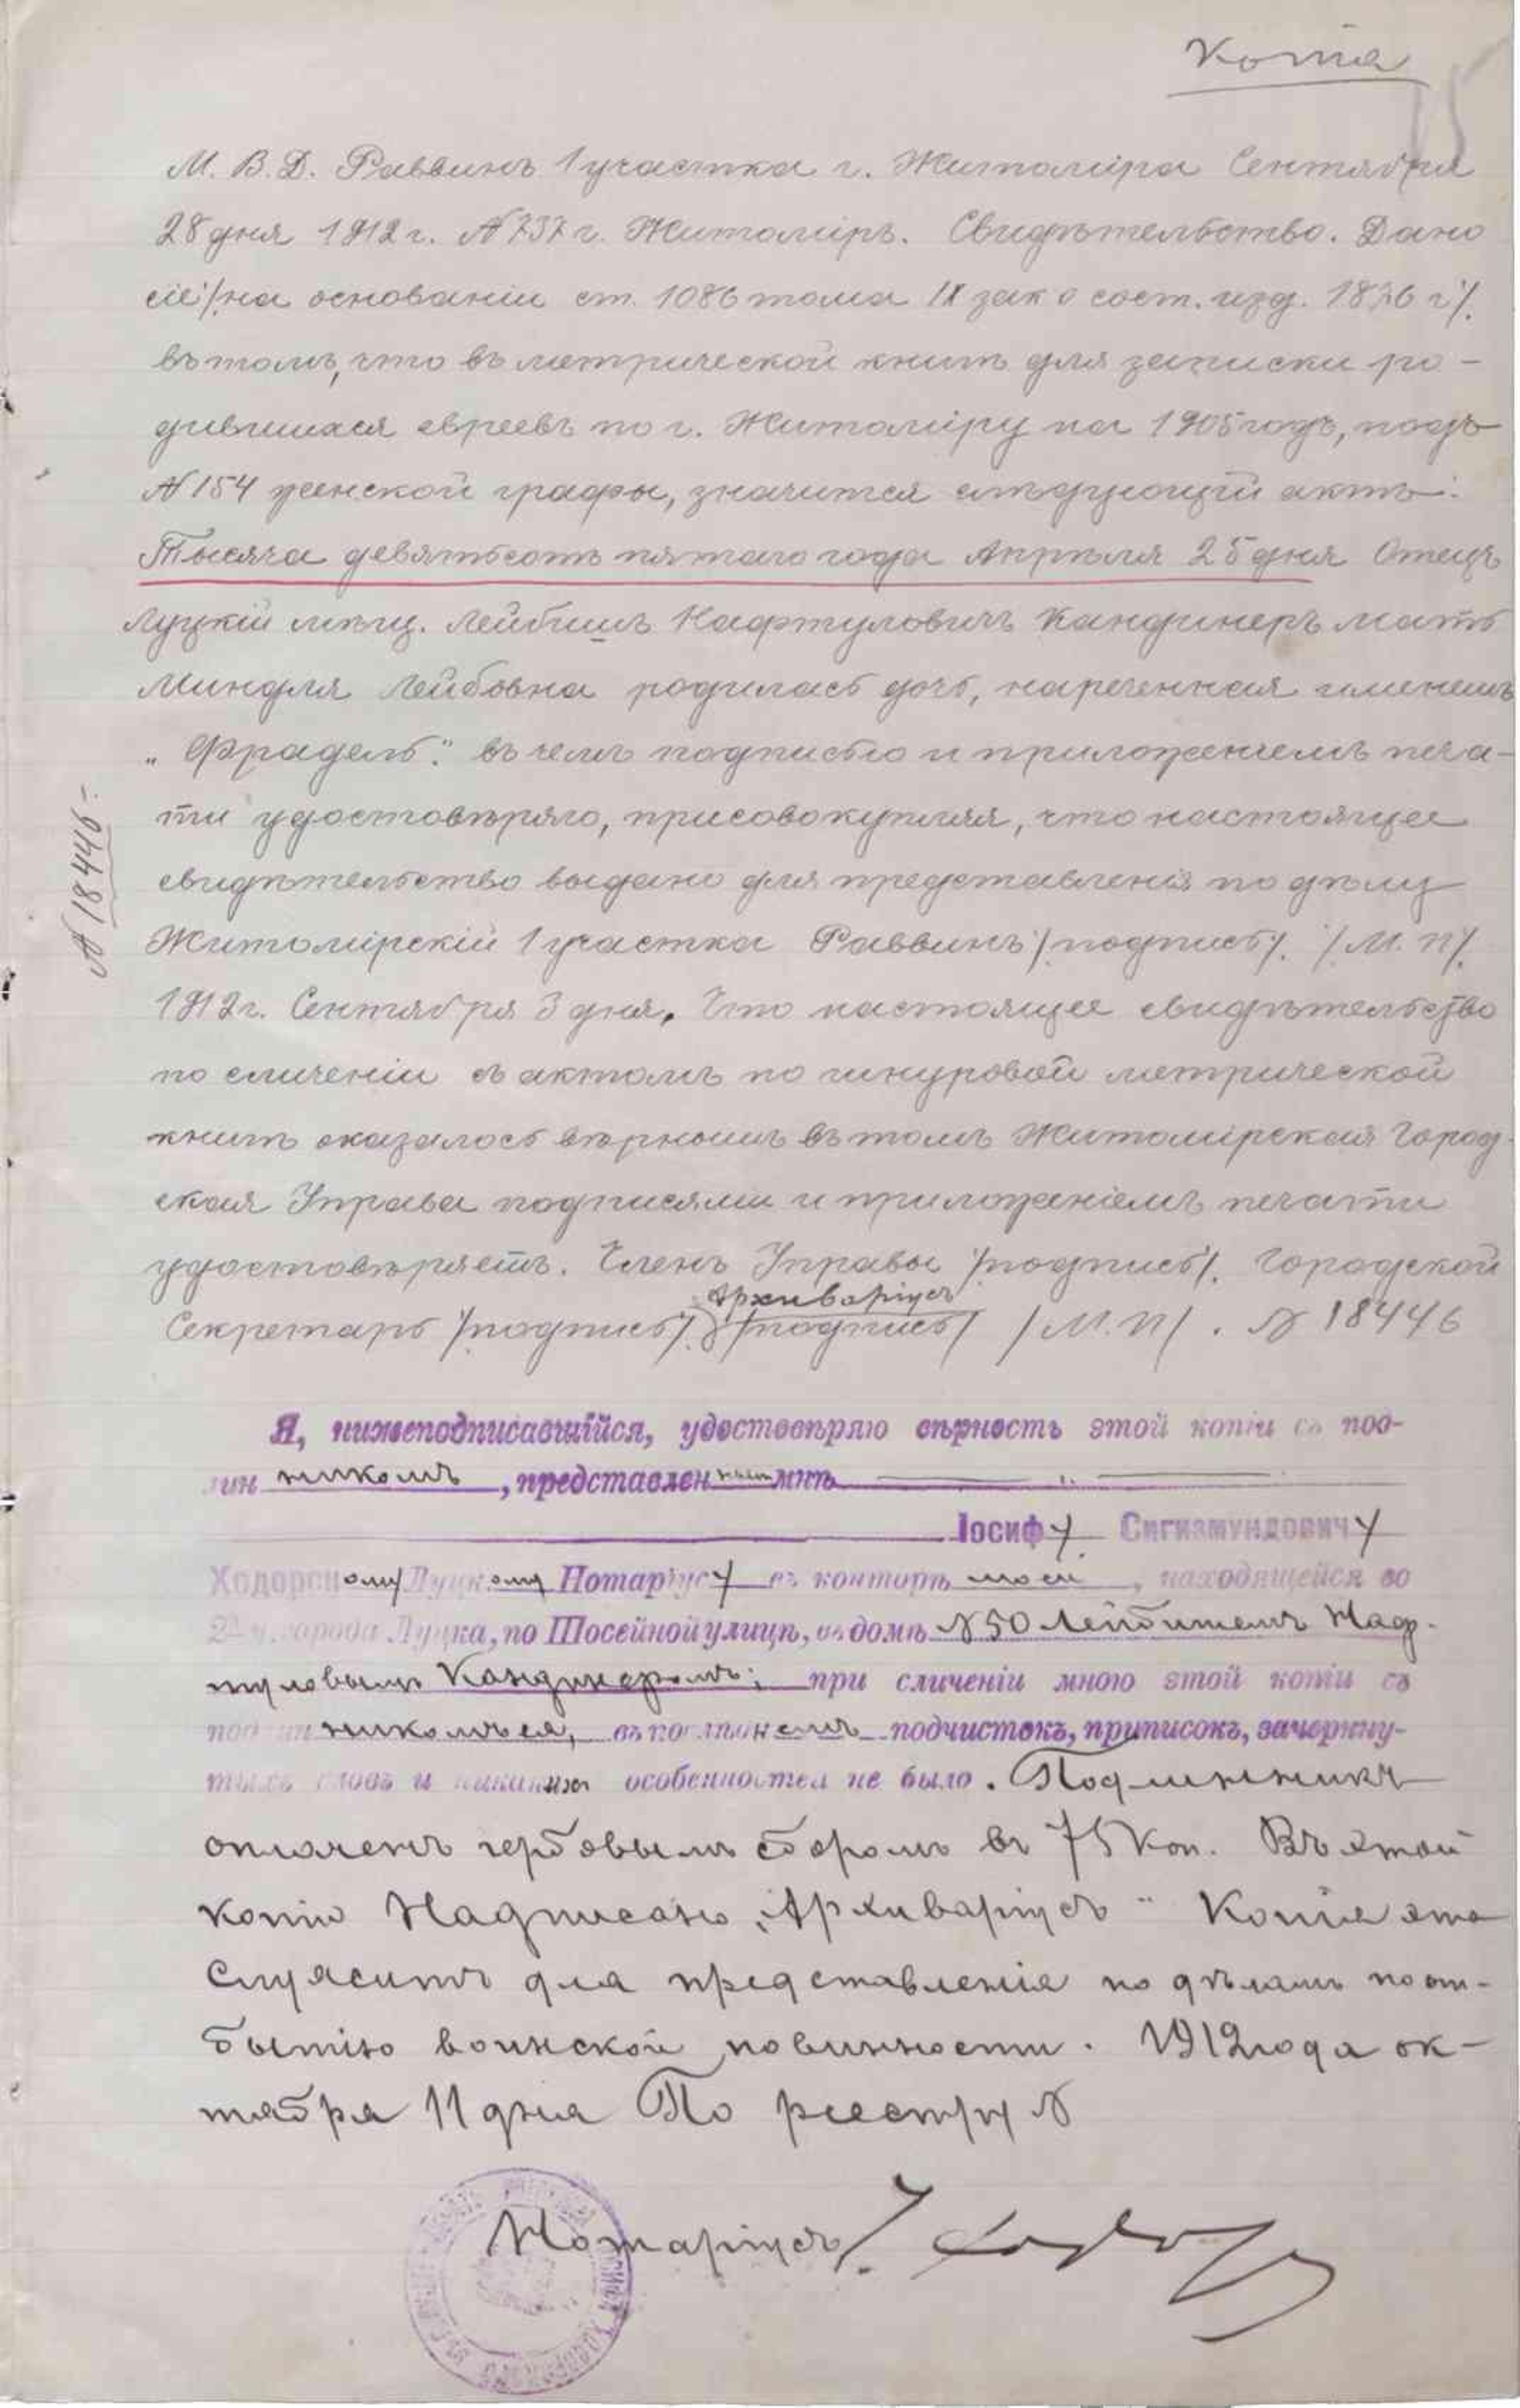 Копія
М. В. Д. Раввинъ 1 участка г. Житоміра Сентября
28 дня 1912 г. № 737 г. Житоміръ. Свидѣтельство. Дано
сіе /на основаніи ст. 1086 тома IX зак о сост. изд. 1876 г/.
въ томъ, что въ метрической книгѣ для записки ро-
дившихся евреевъ по г. Житоміру на 1905 годъ, подъ
№ 154 женской графы, значится слѣдующій актъ:
Тысяча девятьсотъ пятаго года Апрѣля 25 дня Отецъ
Луцкій мѣщ. Лейбишъ Нафтуловичъ Кандинеръ мать
Миндля Лейбовна родилась дочь, нареченная именемъ
„Фрадель". въ чемъ подписью и приложеніемъ печа-
ти удостовѣряю, присовокупляя, что настоящее
свидѣтельство выдано для представленія по дѣлу
Житомірскій 1 участка Раввинъ /подпись/. /М. П/.
1912 г. Сентября 3 дня. Что настоящее свидѣтельство
по сличеніи съ актомъ по шнуровой метрической
книгѣ оказалось вѣрнымъ въ томъ Житомірская Город-
ская Управа подписями и приложеніемъ печати
удостовѣряетъ. Членъ Управы /подпись/. Городской
Архиваріусъ
Секретарь /подпись/. /подпись/ /М. П/. № 18446
№ 18446.
Я, нижеподписавшійся, удостовѣряю вѣрность этой копіи съ под-
лин никомъ, представленнымъ мнѣ
Іосифу Сигизмундовичу
Ходорскому Луцкому Нотаріусу въ конторѣ моей, находящейся во
2й ч. города Луцка, по Шосейной улицѣ, въ домѣ № 50 Лейбишемъ Наф-
туловымъ Кандинеромъ; при сличеніи мною этой копіи съ
подлинникомъ ея, въ послѣднемъ подчистокъ, приписокъ, зачеркну-
тыхъ словъ и никакихъ особенностей не было. Подлинникъ
оплаченъ гербовымъ сборомъ въ 75 коп. Въ этой
копіи Надписано „Архиваріусъ" Копія эта
Служитъ для представленія по дѣламъ по от-
бытію воинской повинности. 1912 года ок-
тября 11 дня По реестру №
Нотаріусъ